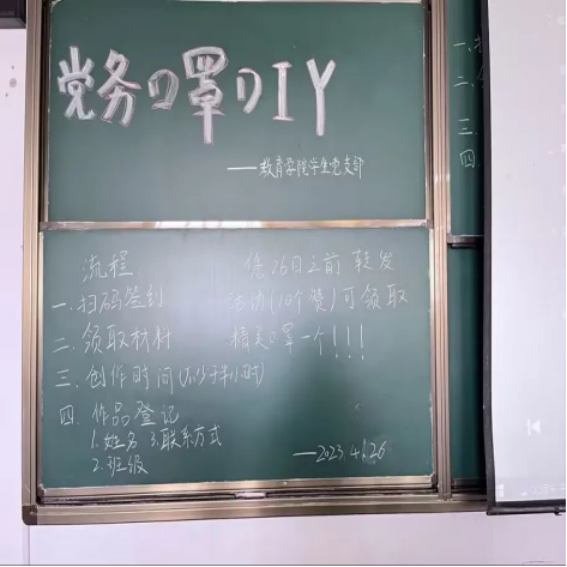 党务口罩DIY
——教育学院学生党支部
流程
一、扫码签到
二、领取材料
三、创作时间(不少于半小时)
四、作品登记
1.姓名 3.联系方式
2.班级
26日之前 转发
活动(10个赞)可领取
精美口罩一个!!!
—2023.4.26
一、
二、
三、
四、